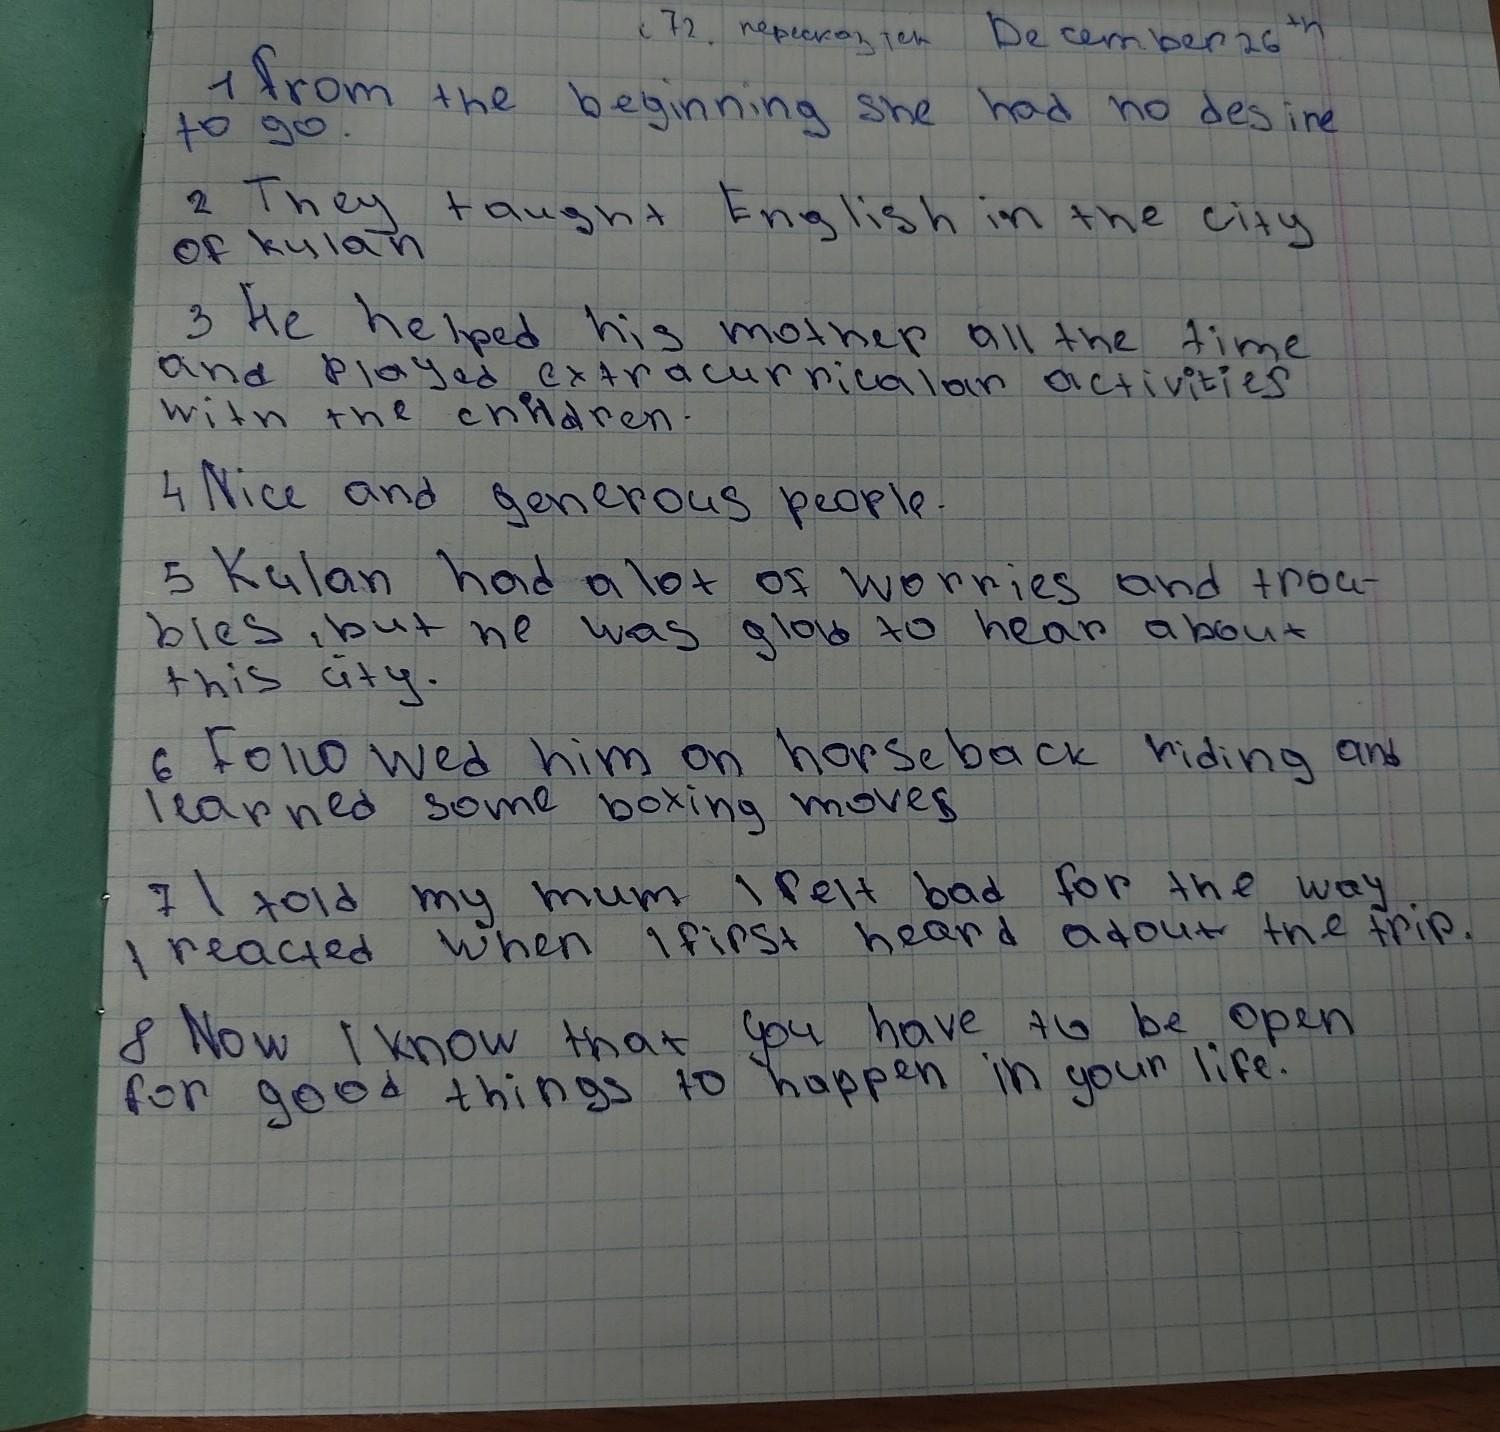 с 72. пересказ тек December 26th
1 From the beginning she had no desire
to go.
2 They taught English in the city
of kulan
3 He helped his mother all the time
and played extracurricalar activities
with the children.
4 Nice and generous people.
5 Kulan had a lot of worries and trou-
bles, but he was glad to hear about
this city.
6 Followed him on horseback riding and
learned some boxing moves
7 I told my mum I felt bad for the way
I reacted when I first heard adout the trip.
8 Now I know that you have to be open
for good things to happen in your life.